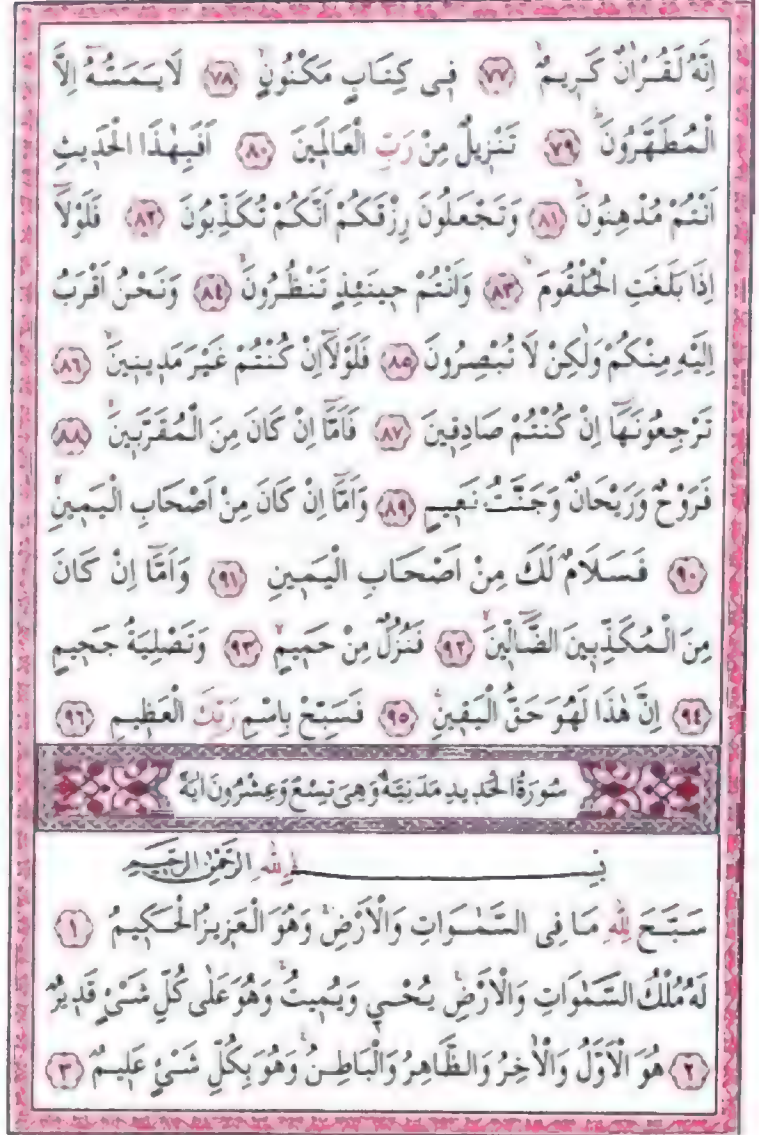 اِنَّهُ لَقُرْاٰنٌ كَر۪يمٌۙ ﴿٧٧﴾ ف۪ي كِتَابٍ مَكْنُونٍۙ ﴿٧٨﴾ لَا يَمَسُّهُٓ اِلَّا
الْمُطَهَّرُونَۜ ﴿٧٩﴾ تَنْز۪يلٌ مِنْ رَبِّ الْعَالَم۪ينَ ﴿٨٠﴾ اَفَبِهٰذَا الْحَد۪يثِ
اَنْتُمْ مُدْهِنُونَۙ ﴿٨١﴾ وَتَجْعَلُونَ رِزْقَكُمْ اَنَّكُمْ تُكَذِّبُونَ ﴿٨٢﴾ فَلَوْلَٓا
اِذَا بَلَغَتِ الْحُلْقُومَۙ ﴿٨٣﴾ وَاَنْتُمْ ح۪ينَئِذٍ تَنْظُرُونَۙ ﴿٨٤﴾ وَنَحْنُ اَقْرَبُ
اِلَيْهِ مِنْكُمْ وَلٰكِنْ لَا تُبْصِرُونَ ﴿٨٥﴾ فَلَوْلَٓا اِنْ كُنْتُمْ غَيْرَ مَد۪ين۪ينَۙ ﴿٨٦﴾
تَرْجِعُونَهَٓا اِنْ كُنْتُمْ صَادِق۪ينَ ﴿٨٧﴾ فَاَمَّٓا اِنْ كَانَ مِنَ الْمُقَرَّب۪ينَۙ ﴿٨٨﴾
فَرَوْحٌ وَرَيْحَانٌ وَجَنَّتُ نَع۪يمٍ ﴿٨٩﴾ وَاَمَّٓا اِنْ كَانَ مِنْ اَصْحَابِ الْيَم۪ينِۙ
﴿٩٠﴾ فَسَلَامٌ لَكَ مِنْ اَصْحَابِ الْيَم۪ينِ ﴿٩١﴾ وَاَمَّٓا اِنْ كَانَ
مِنَ الْمُكَذِّب۪ينَ الضَّٓالّ۪ينَۙ ﴿٩٢﴾ فَنُزُلٌ مِنْ حَم۪يمٍۙ ﴿٩٣﴾ وَتَصْلِيَةُ جَح۪يمٍ
﴿٩٤﴾ اِنَّ هٰذَا لَهُوَ حَقُّ الْيَق۪ينِۚ ﴿٩٥﴾ فَسَبِّحْ بِاسْمِ رَبِّكَ الْعَظ۪يمِ ﴿٩٦﴾
سُورَةُ الْحَد۪يدِ مَدَنِيَّةٌ وَهِيَ تِسْعٌ وَعِشْرُونَ اٰيَةً
بِسْمِ اللّٰهِ الرَّحْمٰنِ الرَّح۪يمِ
سَبَّحَ لِلّٰهِ مَا فِي السَّمٰوَاتِ وَالْاَرْضِۚ وَهُوَ الْعَز۪يزُ الْحَك۪يمُ ﴿١﴾
لَهُ مُلْكُ السَّمٰوَاتِ وَالْاَرْضِۚ يُحْي۪ وَيُم۪يتُۚ وَهُوَ عَلٰى كُلِّ شَيْءٍ قَد۪يرٌ
﴿٢﴾ هُوَ الْاَوَّلُ وَالْاٰخِرُ وَالظَّاهِرُ وَالْبَاطِنُۚ وَهُوَ بِكُلِّ شَيْءٍ عَل۪يمٌ ﴿٣﴾